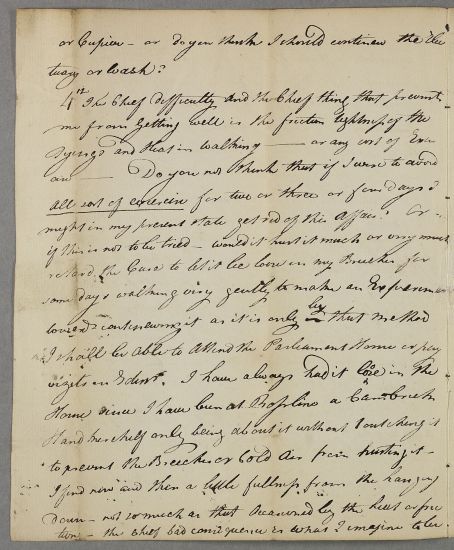 or Cupieu - or do you think I should continue the Elec
tuary or Wash?
4th The Chief difficulty and the Chief thing that prevents
me from getting well is the friction tightness of the
Syrings and Heat in walking — or any sort of Exer
 — Do you not think that if I were to avoid
all sort of exercise for two or three or four days I
might in my present state get rid of this Affair? Or -
if this is not to be tried - would it hurt it much or very much
retard the Cure to let it be loose in my Breeches for
some days walking very gently to make an Experiment
towards continuing it as it is only by that method
I shall be able to attend the Parliament House or pay
vizits in Edinr. I have always had it loose in the
House since I have been at Rosslino a Cambrick
Handkerchief only being about it without touching it
to prevent the Breeches or Cold Air from hurting it -
I find now and then a little fullness from the hanging
down - not so much as that Occasioned by the heat or fric
tion - the chief bad consequence is what I imagine to be